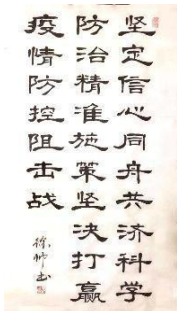 坚定信心同舟共济科学
防治精准施策坚决打赢
疫情防控阻击战